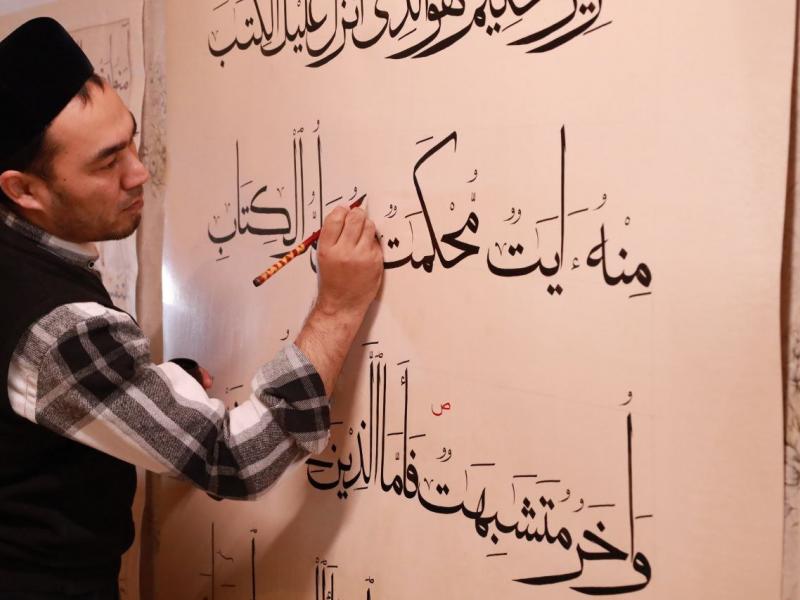 هو الذى انزل عليك الكتب
مِنْهُ ءَايَتٌ مُّحْكَمَتٌ الْكِتَابِ
وَأُخَرُ مُتَشَبِهَتٌ ص فَأَمَّا الَّذِينَ